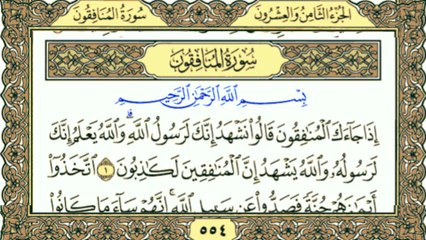 الجزء الثامن والعشرون
سورة المنافقون
سُورَةُ المُنَافِقُونَ
بِسْمِ اللَّهِ الرَّحْمَٰنِ الرَّحِيمِ
إِذَا جَآءَكَ الْمُنَٰفِقُونَ قَالُوا۟ نَشْهَدُ إِنَّكَ لَرَسُولُ اللَّهِ ۗ وَاللَّهُ يَعْلَمُ إِنَّكَ
لَرَسُولُهُۥ وَاللَّهُ يَشْهَدُ إِنَّ الْمُنَٰفِقِينَ لَكَٰذِبُونَ ١ اتَّخَذُوٓا۟
أَيْمَٰنَهُمْ جُنَّةً فَصَدُّوا۟ عَن سَبِيلِ اللَّهِ ۚ إِنَّهُمْ سَآءَ مَا كَانُوا۟
٥٥٤